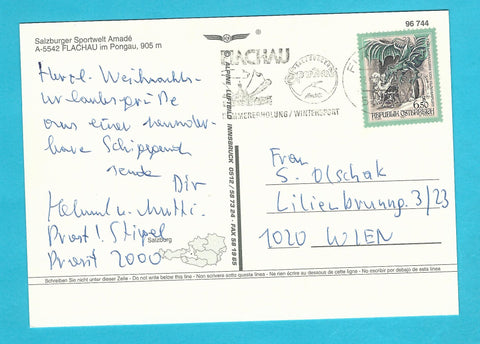 Salzburger Sportwelt Amadé
A-5542 FLACHAU im Pongau, 905 m
96 744
Herzl. Weihnachts-
urlaubsgrüße
aus einer wunder-
baren Schigegend
sende Dir
Helmut u. Mutti.
Prost!
Prosit 2000
Salzburg
ALPINE LUFTBILD INNSBRUCK 0512/58 73 24 - FAX 58 19 85
FLACHAU
SOMMERERHOLUNG / WINTERSPORT
6.50
REPUBLIK ÖSTERREICH
Frau
S. Olschak
Lilienbrunng. 3/23
1020 WIEN
Schreiben Sie nicht unter dieser Zeile - Do not write below this line - Non scrivere sotto questa linea - Ne rien écrire au dessous de cette ligne - No escribir por debajo de esta linea